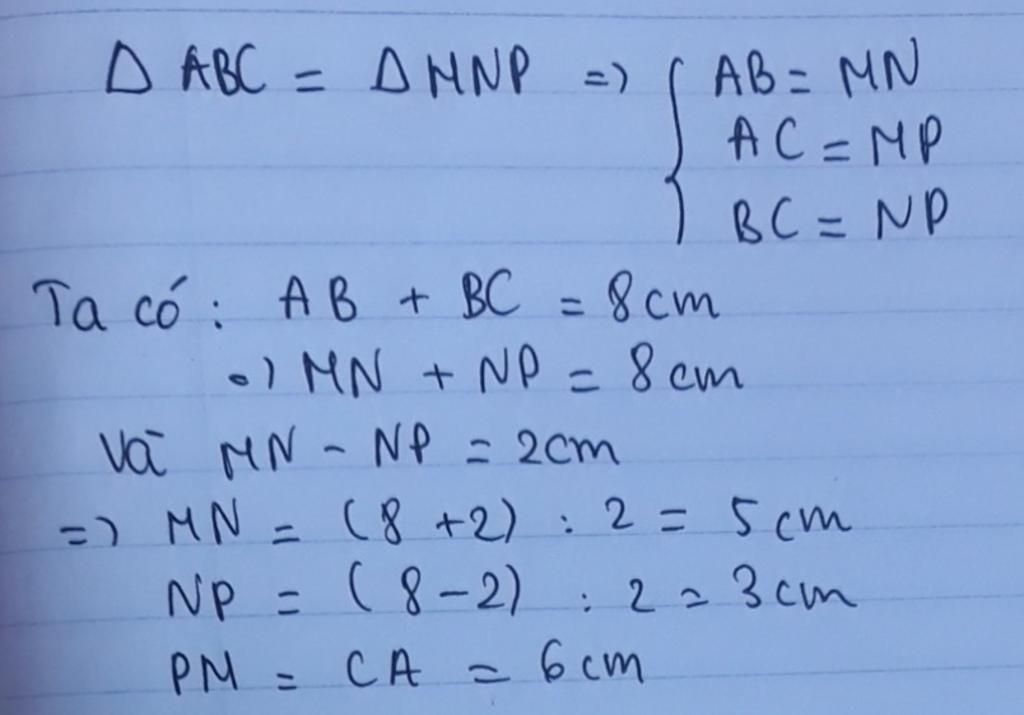 Δ ABC = Δ MNP => { AB = MN
AC = MP
BC = NP
Ta có : AB + BC = 8cm
=> MN + NP = 8cm
Và MN - NP = 2cm
=> MN = (8 +2) : 2 = 5cm
NP = (8-2) : 2 = 3cm
PM = CA = 6cm